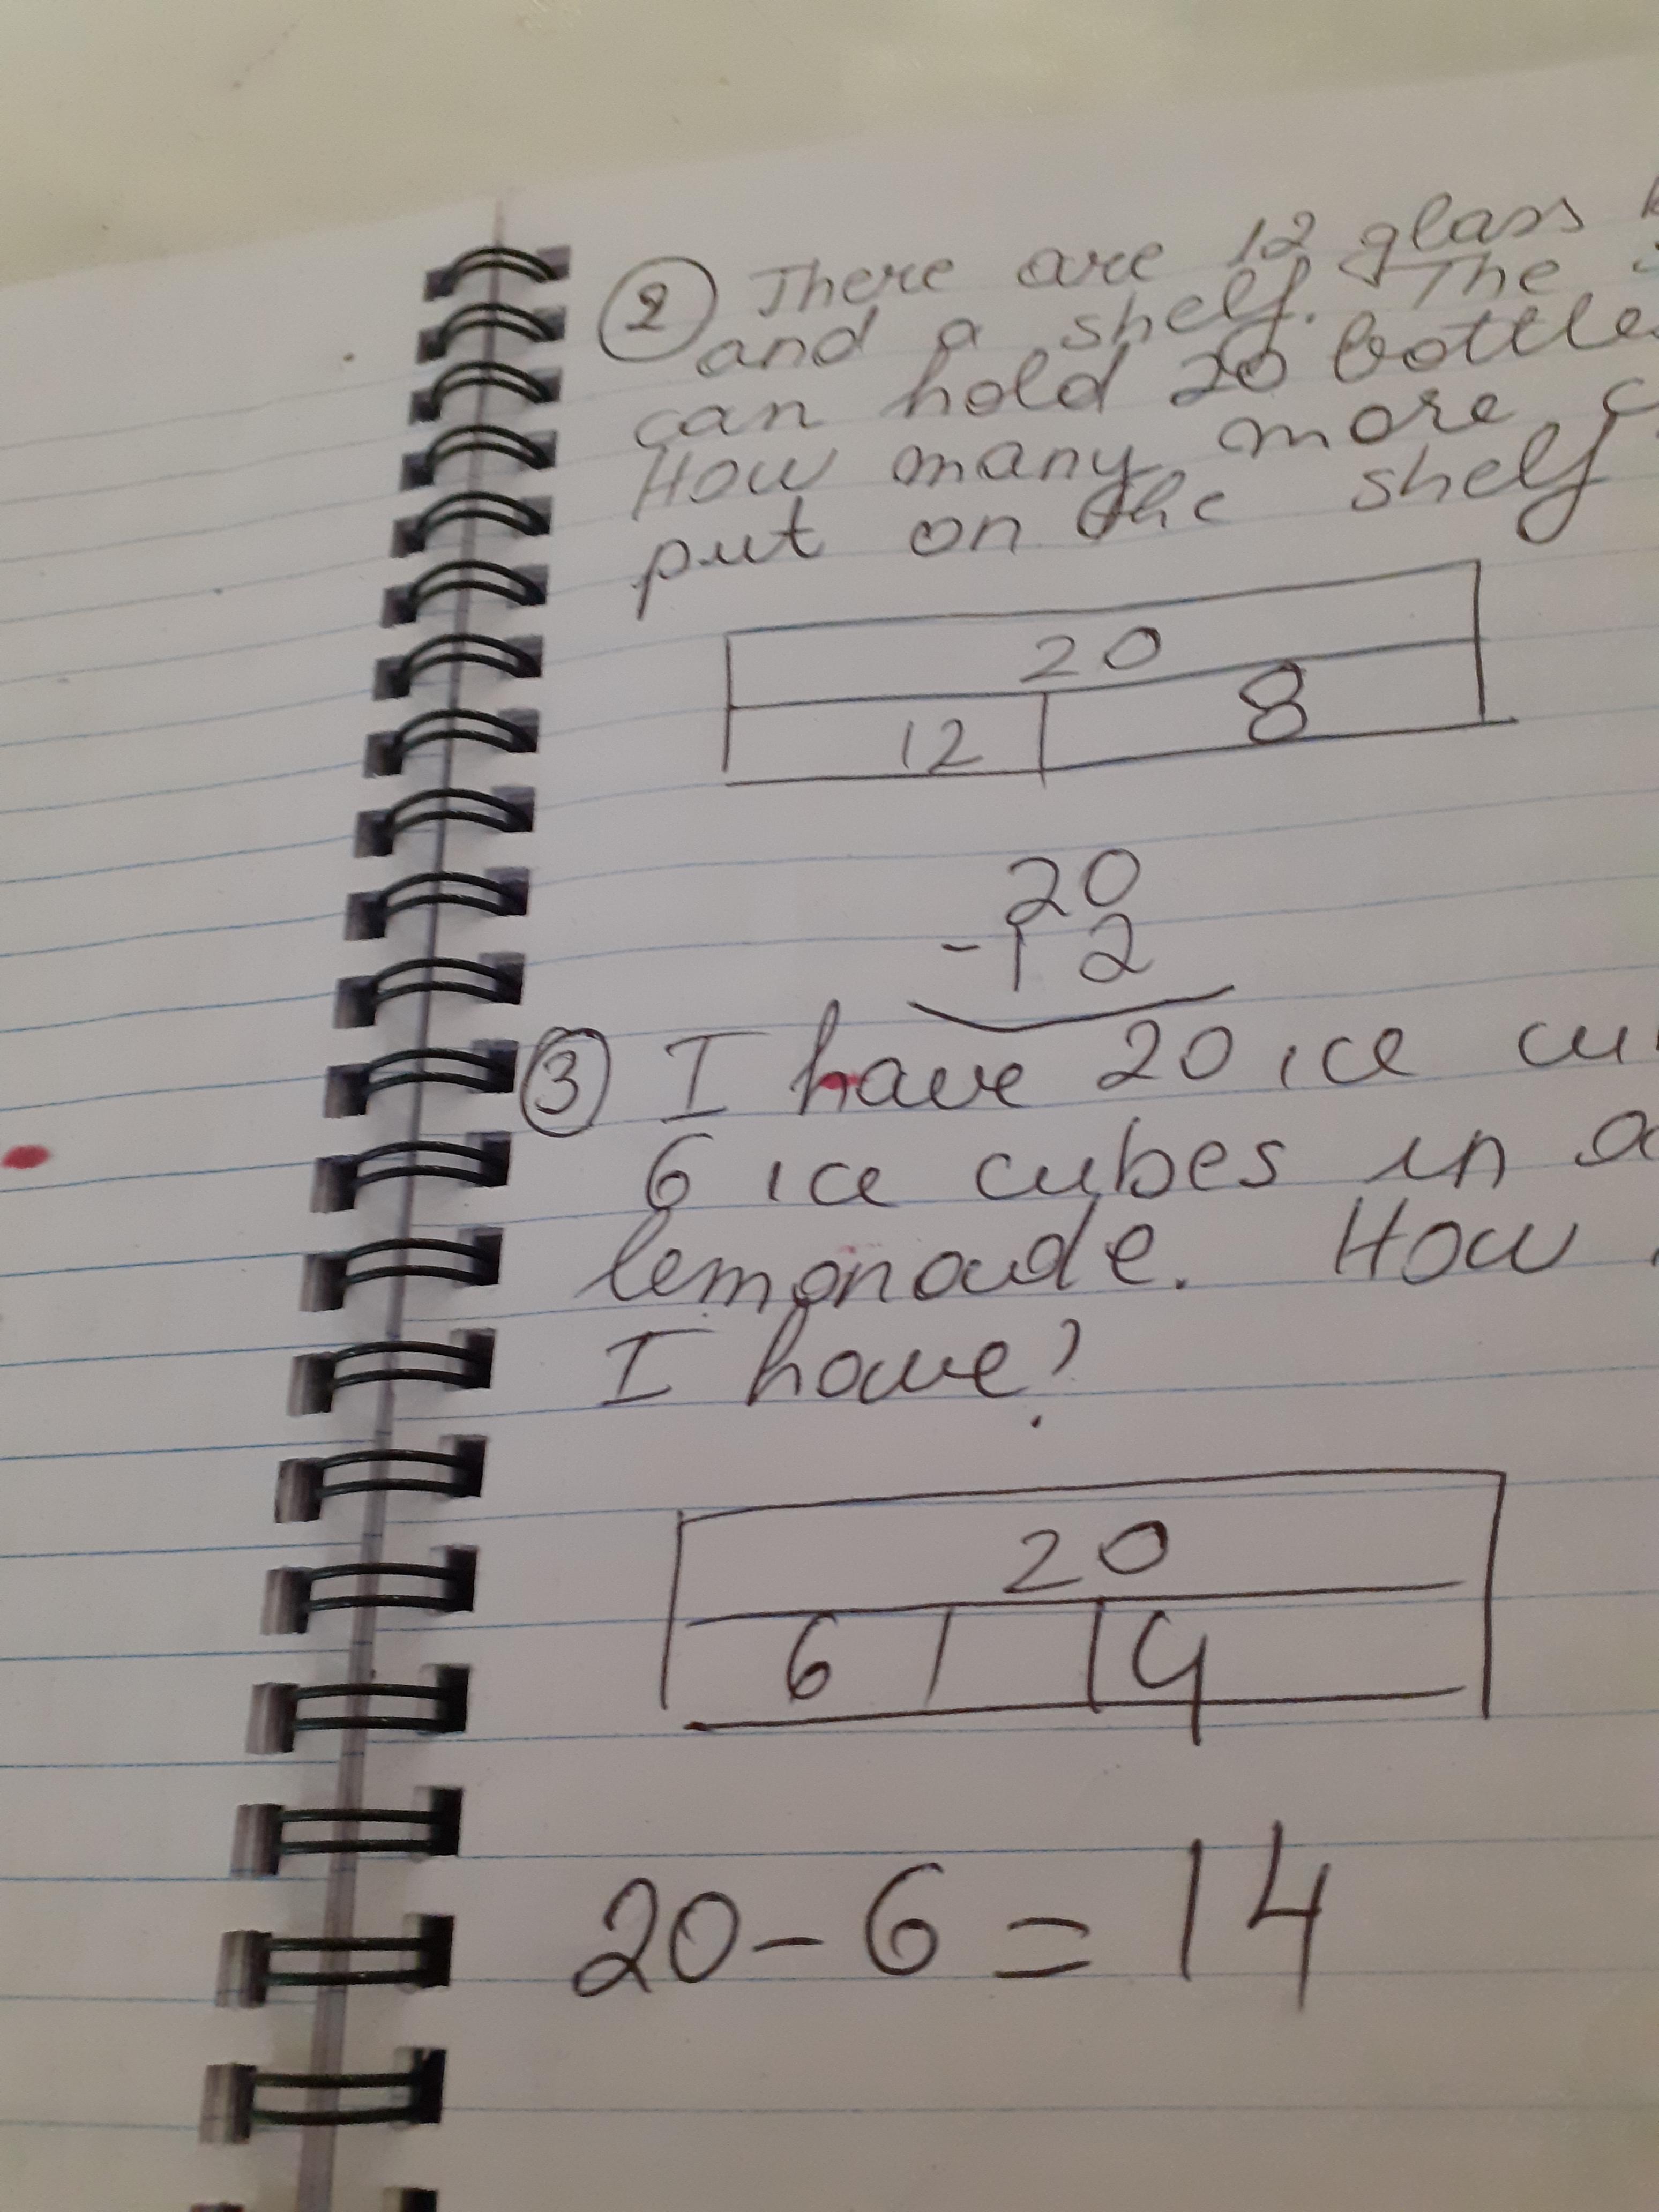 2 There are 12 glass
and a shelf. The
can hold 20 bottle
How many more
put on the shelf
20
12 8
20
- 12
3 I have 20 ice cu
6 ice cubes in a
lemonade. How
I have?
20
6 14
20 - 6 = 14